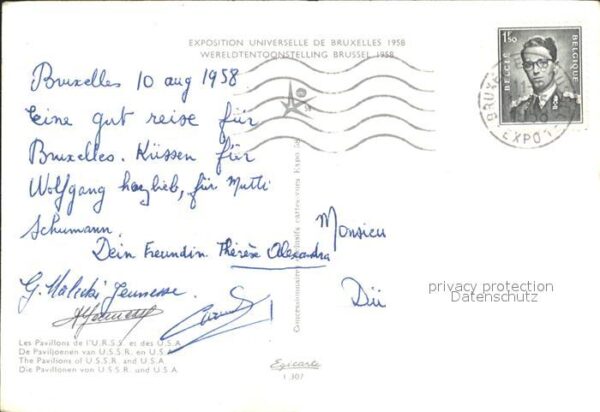 EXPOSITION UNIVERSELLE DE BRUXELLES 1958
WERELDTENTOONSTELLING BRUSSEL 1958
1F50
BELGIE BELGIQUE
EXPO
Bruxelles 10 aug 1958
Eine gut reise für
Bruxelles. Küssen für
Wolfgang hezlieb, für Mutti
Schumann.
Dein Freundin. Thérèse Alexandra
G. Malecki Jeunesse.
Monsieu
Dü
privacy protection
Datenschutz
Les Pavillons de l'U.R.S.S. et des U.S.A.
De Paviljoenen van U.S.S.R. en U.S.A.
The Pavilions of U.S.S.R. and U.S.A.
Die Pavillonen von U.S.S.R. und U.S.A.
Concessionnaire exclusifs cartes-vues Expo 58
Egicarte
1 307